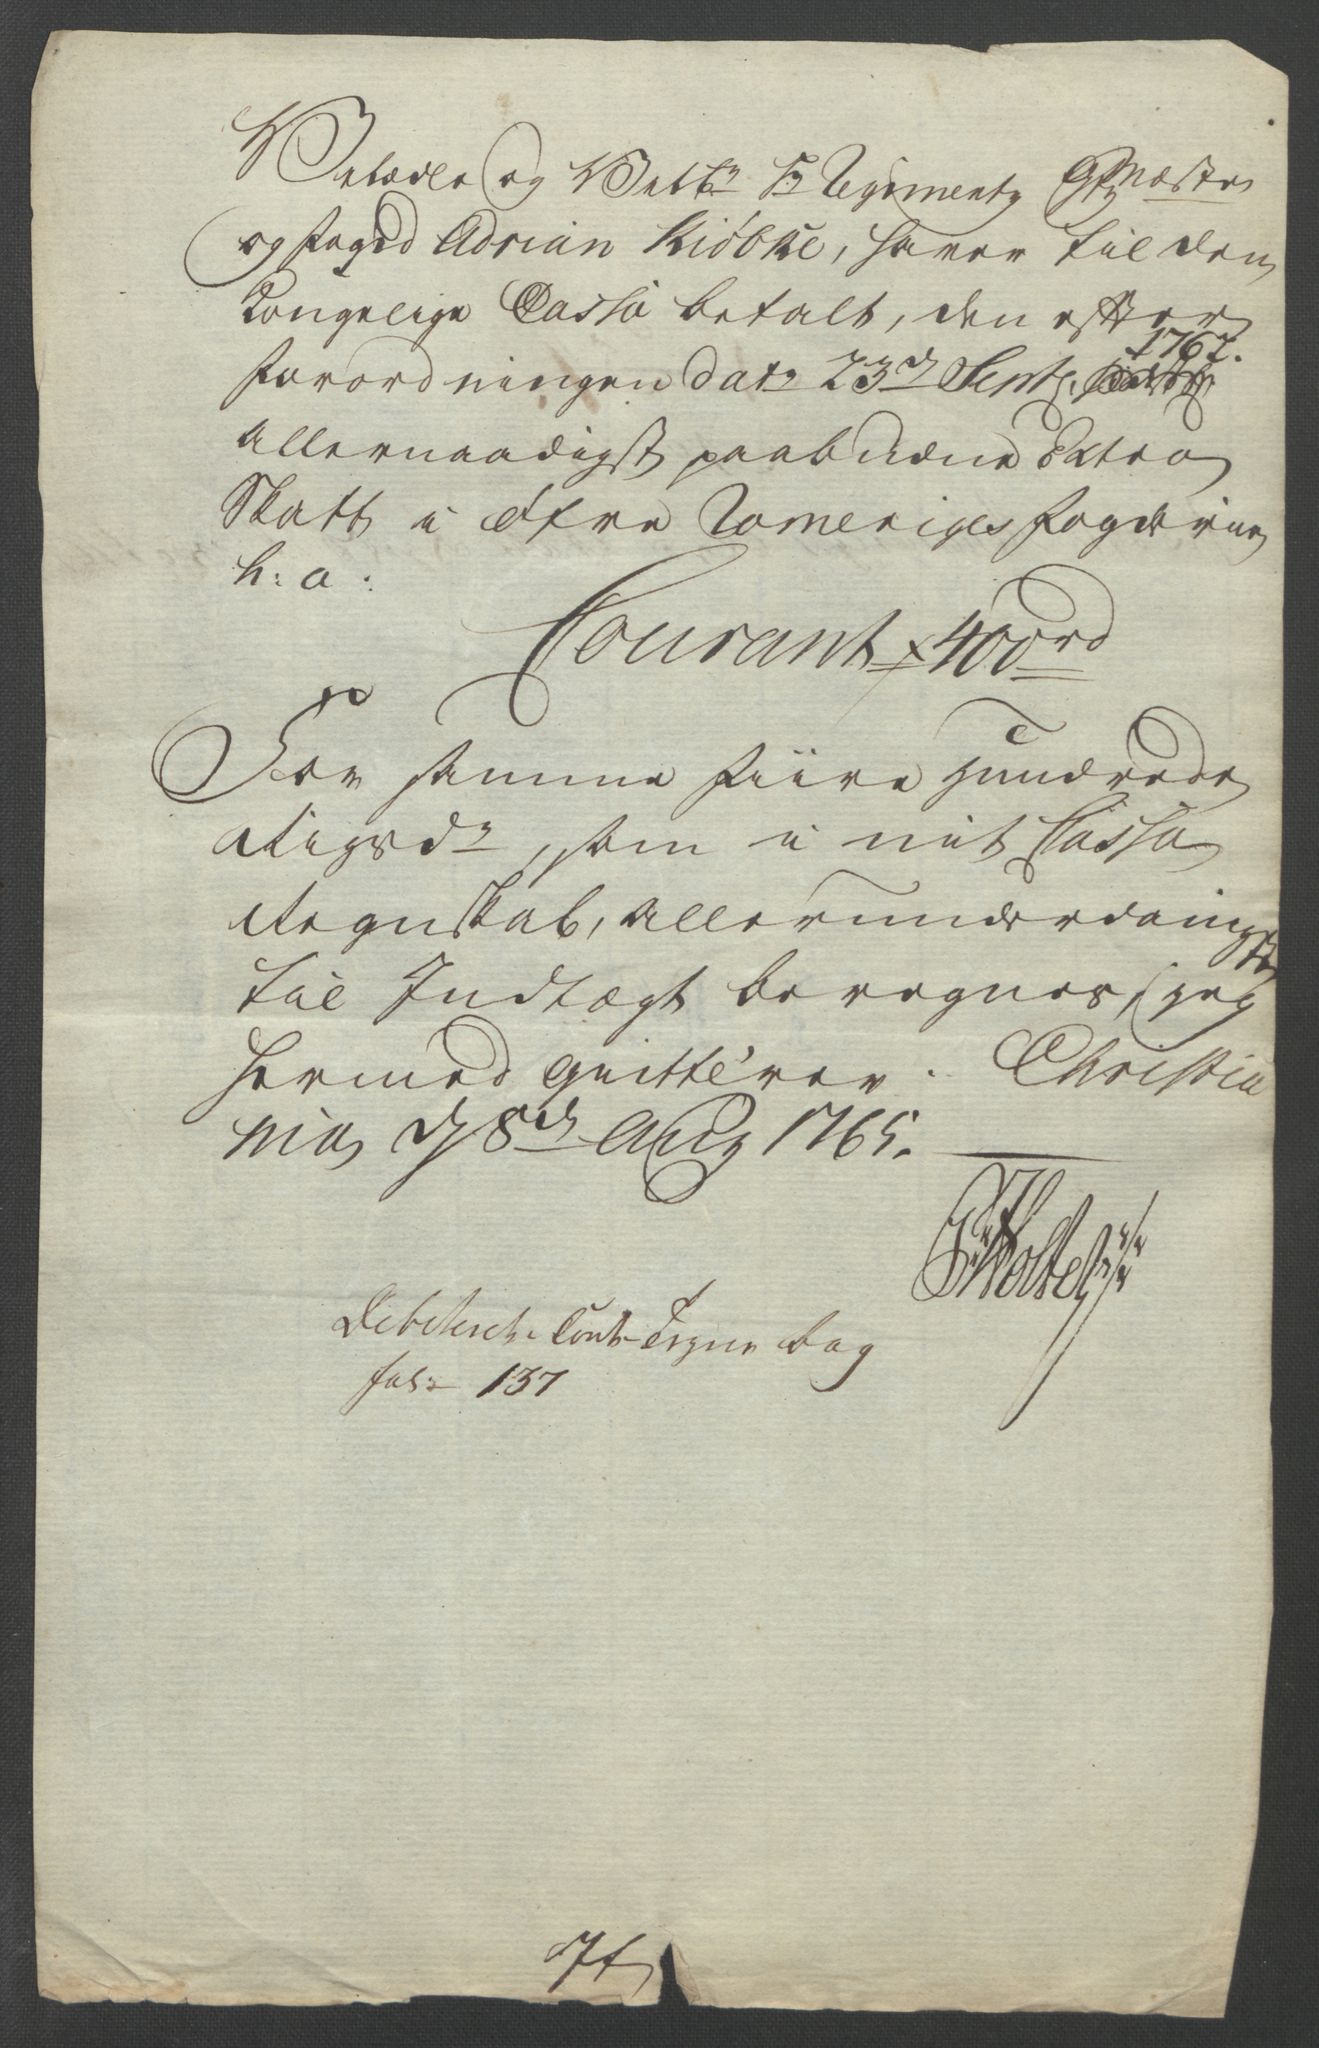 Velædle og Velb: Hr Regiments Qvt:mæster
og Foged Adrian Kiøbke, haver til den
Kongelige Cassa betalt, den efter
Forordningen dat: 23d Sept: 1762.
allernaadigst paabudne Extra
Skatt i Øfre Romeriges Fogderie
h: a:
Courant 400 rd
For samme Fiire Hundrede
Rigsd:, som i mit Cassa
Regnskab, allerunderdanigst
til Indtægt beregnes, jeg
hermed qvitterer. Christia
nia d 8d Aug 1765.
Holte
Debiteret i Cont: Tegne bog
fol: 137